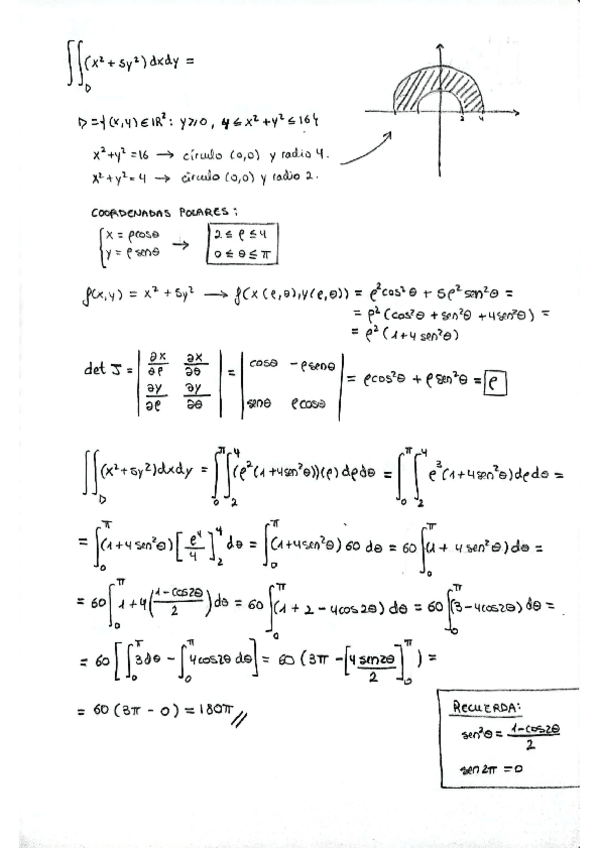 ∬_D (x² + 5y²) dxdy =
2 4
D = {(x,y) ∈ ℝ²: y ≥ 0, 4 ≤ x² + y² ≤ 16}
x² + y² = 16 → círculo (0,0) y radio 4.
x² + y² = 4 → círculo (0,0) y radio 2.
COORDENADAS POLARES:
{ x = ρcosθ → 2 ≤ ρ ≤ 4
{ y = ρsenθ 0 ≤ θ ≤ π
f(x,y) = x² + 5y² → f(x(ρ,θ),y(ρ,θ)) = ρ²cos²θ + 5ρ²sen²θ =
= ρ²(cos²θ + sen²θ + 4sen²θ) =
= ρ²(1+4sen²θ)
det J = | ∂x/∂ρ ∂x/∂θ | = | cosθ -ρsenθ | = ρcos²θ + ρsen²θ = ρ
| ∂y/∂ρ ∂y/∂θ | | senθ ρcosθ |
∬_D (x²+5y²)dxdy = ∫_0^π ∫_2^4 (ρ²(1+4sen²θ))(ρ) dρdθ = ∫_0^π ∫_2^4 ρ³(1+4sen²θ)dρdθ =
= ∫_0^π (1+4sen²θ) [ρ⁴/4]_2^4 dθ = ∫_0^π (1+4sen²θ) 60 dθ = 60 ∫_0^π (1 + 4sen²θ)dθ =
= 60 ∫_0^π 1+4((1-cos2θ)/2) dθ = 60 ∫_0^π (1+2-4cos2θ) dθ = 60 ∫_0^π (3-4cos2θ) dθ =
= 60 [∫_0^π 3dθ - ∫_0^π 4cos2θ dθ] = 60 (3π - [4sen2θ/2]_0^π) =
= 60 (3π - 0) = 180π //
RECUERDA:
sen²θ = (1-cos2θ)/2
sen 2π = 0